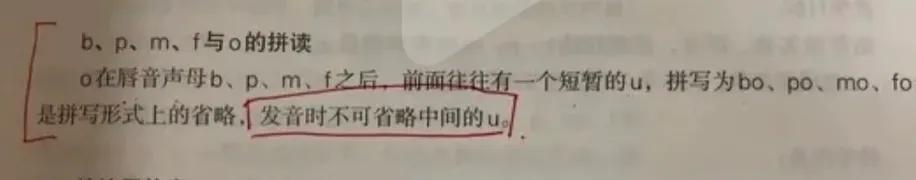 b、p、m、f与o的拼读
o在唇音声母b、p、m、f之后，前面往往有一个短暂的u，拼写为bo、po、mo、fo
是拼写形式上的省略，发音时不可省略中间的u。